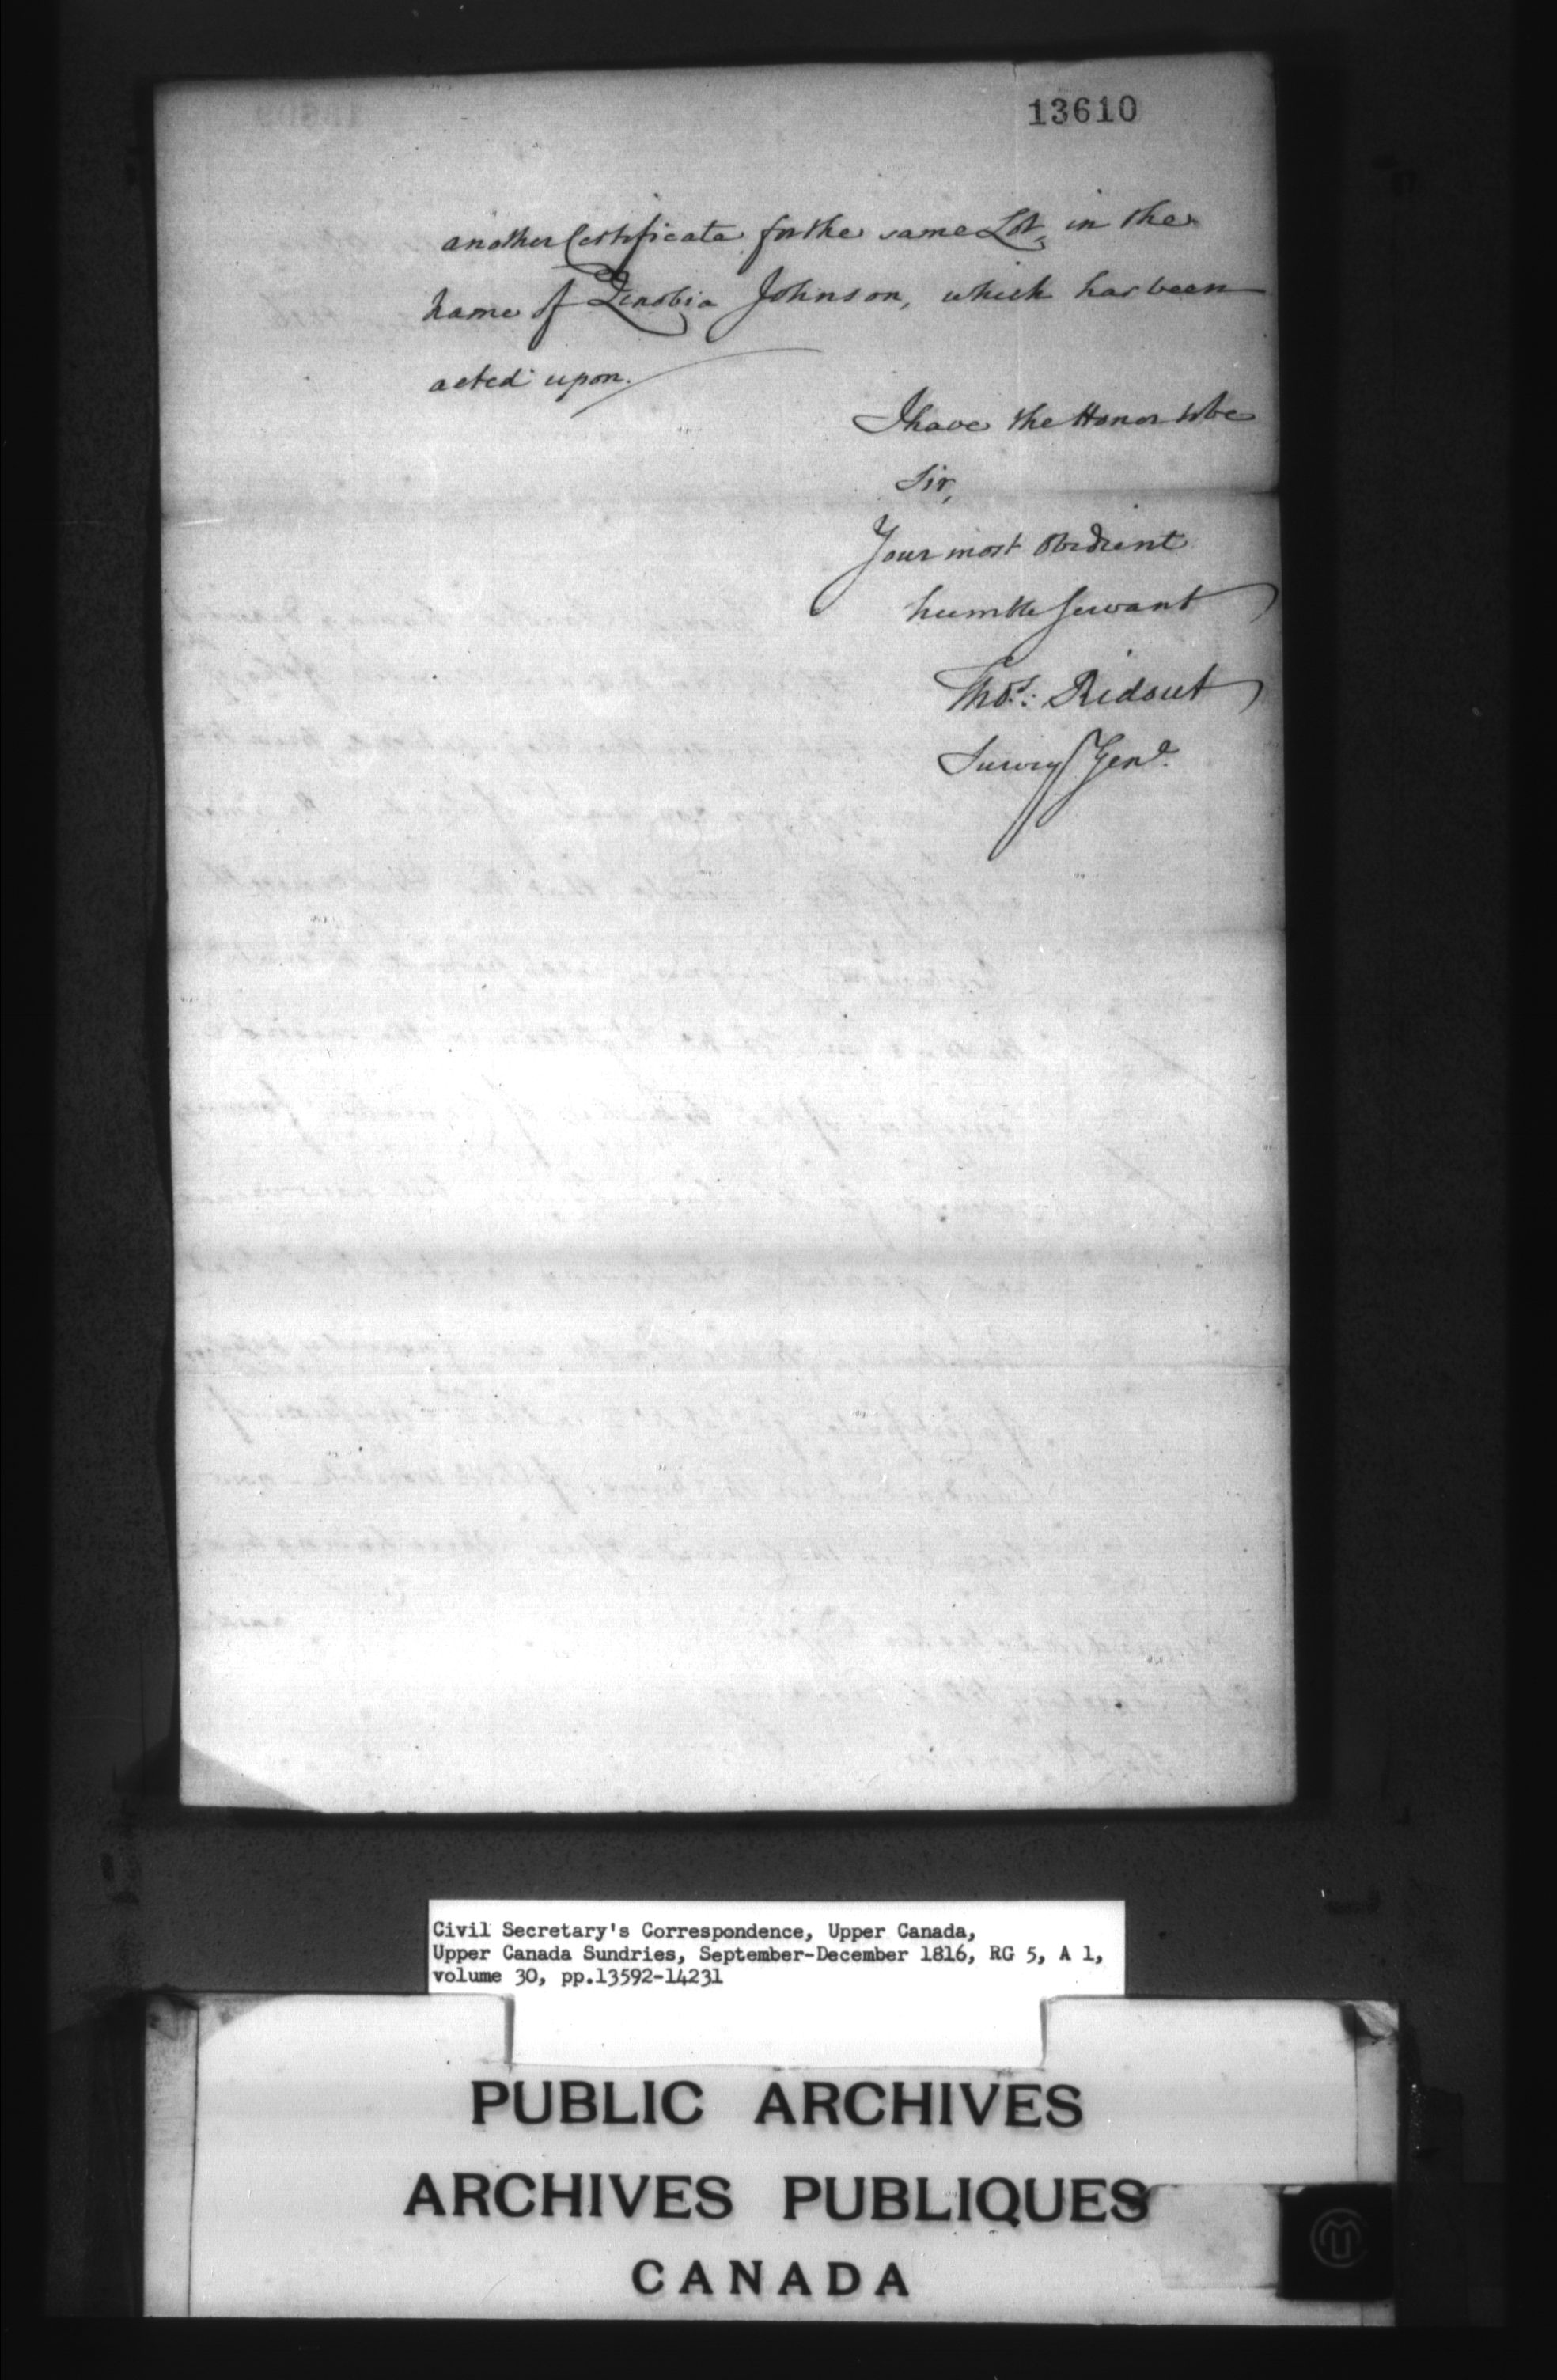 13610
another Certificate for the same Lot, in the
name of Zenobia Johnson, which has been
acted upon.
I have the Honor to be
Sir,
Your most Obedient
humble Servant
Thos. Ridout
Survey Genl.
Civil Secretary's Correspondence, Upper Canada,
Upper Canada Sundries, September-December 1816, RG 5, A 1,
volume 30, pp.13592-14231
PUBLIC ARCHIVES
ARCHIVES PUBLIQUES
CANADA